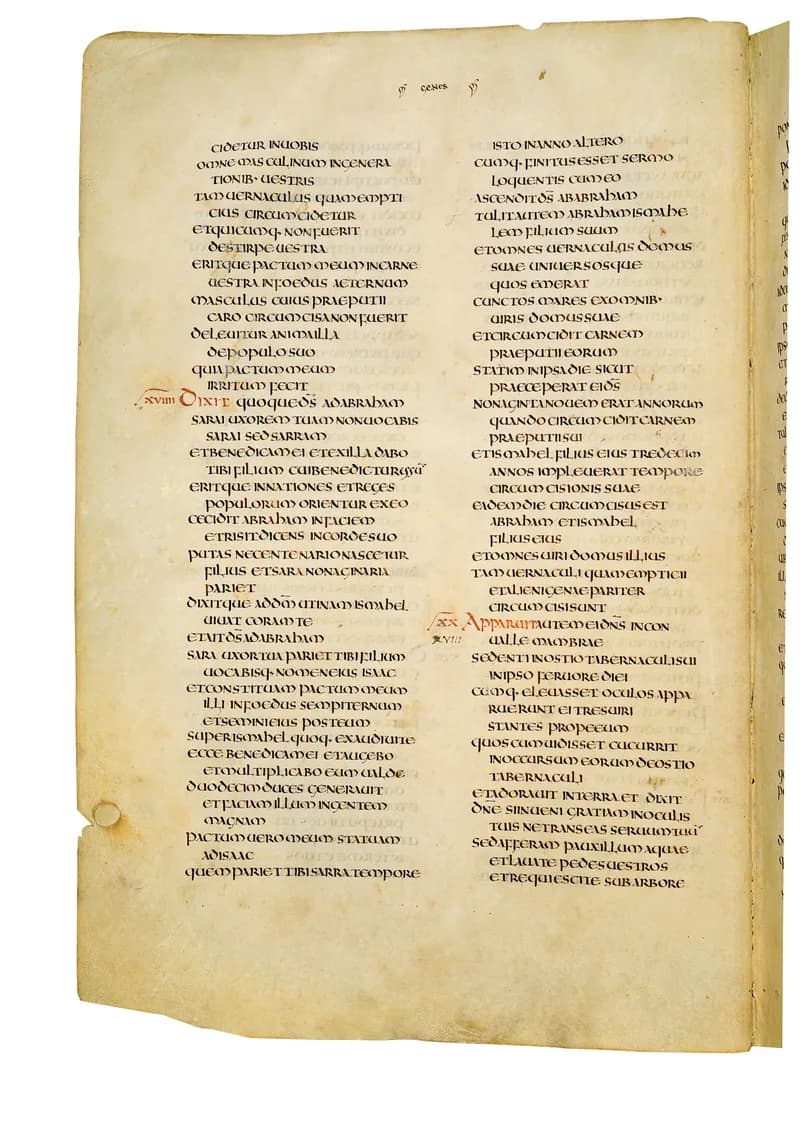 GENES
CIDETUR INUOBIS
OMNE MASCULINUM INGENERA
TIONIB· UESTRIS
TAM UERNACULUS QUAM EMPTI
CIUS CIRCUMCIDETUR
ETQUICUMQ· NONFUERIT
DESTIRPE UESTRA
ERITQUE PACTUM MEUM INCARNE
UESTRA INFOEDUS AETERNUM
MASCULUS CUIUS PRAEPUTII
CARO CIRCUMCISA NON FUERIT
DELEUITUR ANIMA ILLA
DEPOPULO SUO
QUIA PACTUM MEUM
IRRITUM FECIT
XVIIII DIXIT QUOQUE D̄S̄ ADABRAHAM
SARAI UXOREM TUAM NONUOCABIS
SARAI SED SARRAM
ETBENEDICAM EI ETEXILLA DABO
TIBI FILIUM CUI BENEDICTURUSSŪ
ERITQUE INNATIONES ETREGES
POPULORUM ORIENTUR EXEO
CECIDIT ABRAHAM INFACIEM
ETRISIT DICENS INCORDE SUO
PUTAS NECENTENARIO NASCETUR
FILIUS ETSARA NONAGINARIA
PARIET
DIXITQUE ADD̄M̄ UTINAM ISMAHEL
UIUAT CORAM TE
ETAIT D̄S̄ ADABRAHAM
SARA UXOR TUA PARIET TIBI FILIUM
UOCABISQ· NOMEN EIUS ISAAC
ETCONSTITUAM PACTUM MEUM
ILLI INFOEDUS SEMPITERNUM
ETSEMINI EIUS POST EUM
SUPER ISMAHEL QUOQ· EXAUDIUI TE
ECCE BENEDICAM EI ETAUGEBO
ETMULTIPLICABO EUM UALDE
DUODECIM DUCES GENERAUIT
ETFACIAM ILLUM INGENTEM
MAGNAM
PACTUM UERO MEUM STATUAM
ADISAAC
QUEM PARIET TIBI SARRA TEMPORE
ISTO INANNO ALTERO
CUMQ· FINITUS ESSET SERMO
LOQUENTIS CUM EO
ASCENDIT D̄S̄ ABABRAHAM
TULIT AUTEM ABRAHAM ISMAHE
LEM FILIUM SUUM
ETOMNES UERNACULOS DOMUS
SUAE UNIUERSOSQUE
QUOS EMERAT
CUNCTOS MARES EXOMNIB·
UIRIS DOMUS SUAE
ETCIRCUMCIDIT CARNEM
PRAEPUTII EORUM
STATIM INIPSA DIE SICUT
PRAECEPERAT EI D̄S̄
NONAGINTA NOUEM ERAT ANNORUM
QUANDO CIRCUMCIDIT CARNEM
PRAEPUTII SUI
ETISMAHEL FILIUS EIUS TREDECIM
ANNOS IMPLEUERAT TEMPORE
CIRCUMCISIONIS SUAE
EADEM DIE CIRCUMCISUS EST
ABRAHAM ETISMAHEL
FILIUS EIUS
ETOMNES UIRI DOMUS ILLIUS
TAM UERNACULI QUAM EMPTICII
ETALIENIGENAE PARITER
CIRCUMCISI SUNT
XX APPARUIT AUTEM EI D̄N̄S̄ INCON
XVIII UALLE MAMBRAE
SEDENTI INOSTIO TABERNACULI SUI
INIPSO FERUORE DIEI
CUMQ· ELEUASSET OCULOS APPA
RUERUNT EI TRES UIRI
STANTES PROPE EUM
QUOS CUM UIDISSET CUCURRIT
INOCCURSUM EORUM DEOSTIO
TABERNACULI
ETADORAUIT INTERRA ET DIXIT
D̄N̄E SI INUENI GRATIAM INOCULIS
TUIS NETRANSEAS SERUUM TUŪ
SED AFFERAM PAUXILLUM AQUAE
ETLAUATE PEDES UESTROS
ETREQUIESCITE SUB ARBORE